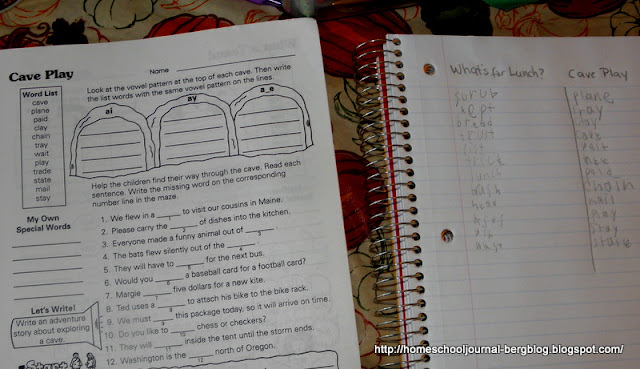 Cave Play
Name
Word List
cave
plane
paid
clay
chain
tray
wait
play
trade
state
mail
stay
My Own
Special Words
Let's Write!
Write an adventure
story about exploring
a cave.
Look at the vowel pattern at the top of each cave. Then write
the list words with the same vowel pattern on the lines.
ai
ay
a_e
Help the children find their way through the cave. Read each
sentence. Write the missing word on the corresponding
number line in the maze.
1. We flew in a 1 to visit our cousins in Maine.
2. Please carry the 2 of dishes into the kitchen.
3. Everyone made a funny animal out of 3.
4. The bats flew silently out of the 4.
5. They will have to 5 for the next bus.
6. Would you 6 a baseball card for a football card?
7. Margie 7 five dollars for a new kite.
8. Ted uses a 8 to attach his bike to the bike rack.
9. We must 9 this package today, so it will arrive on time.
10. Do you like to 10 chess or checkers?
11. They will 11 inside the tent until the storm ends.
12. Washington is the 12 north of Oregon.
Start
What's for Lunch?
Cave Play
plane
chain
mail
play
stay
state
http://homeschooljournal-bergblog.blogspot.com/